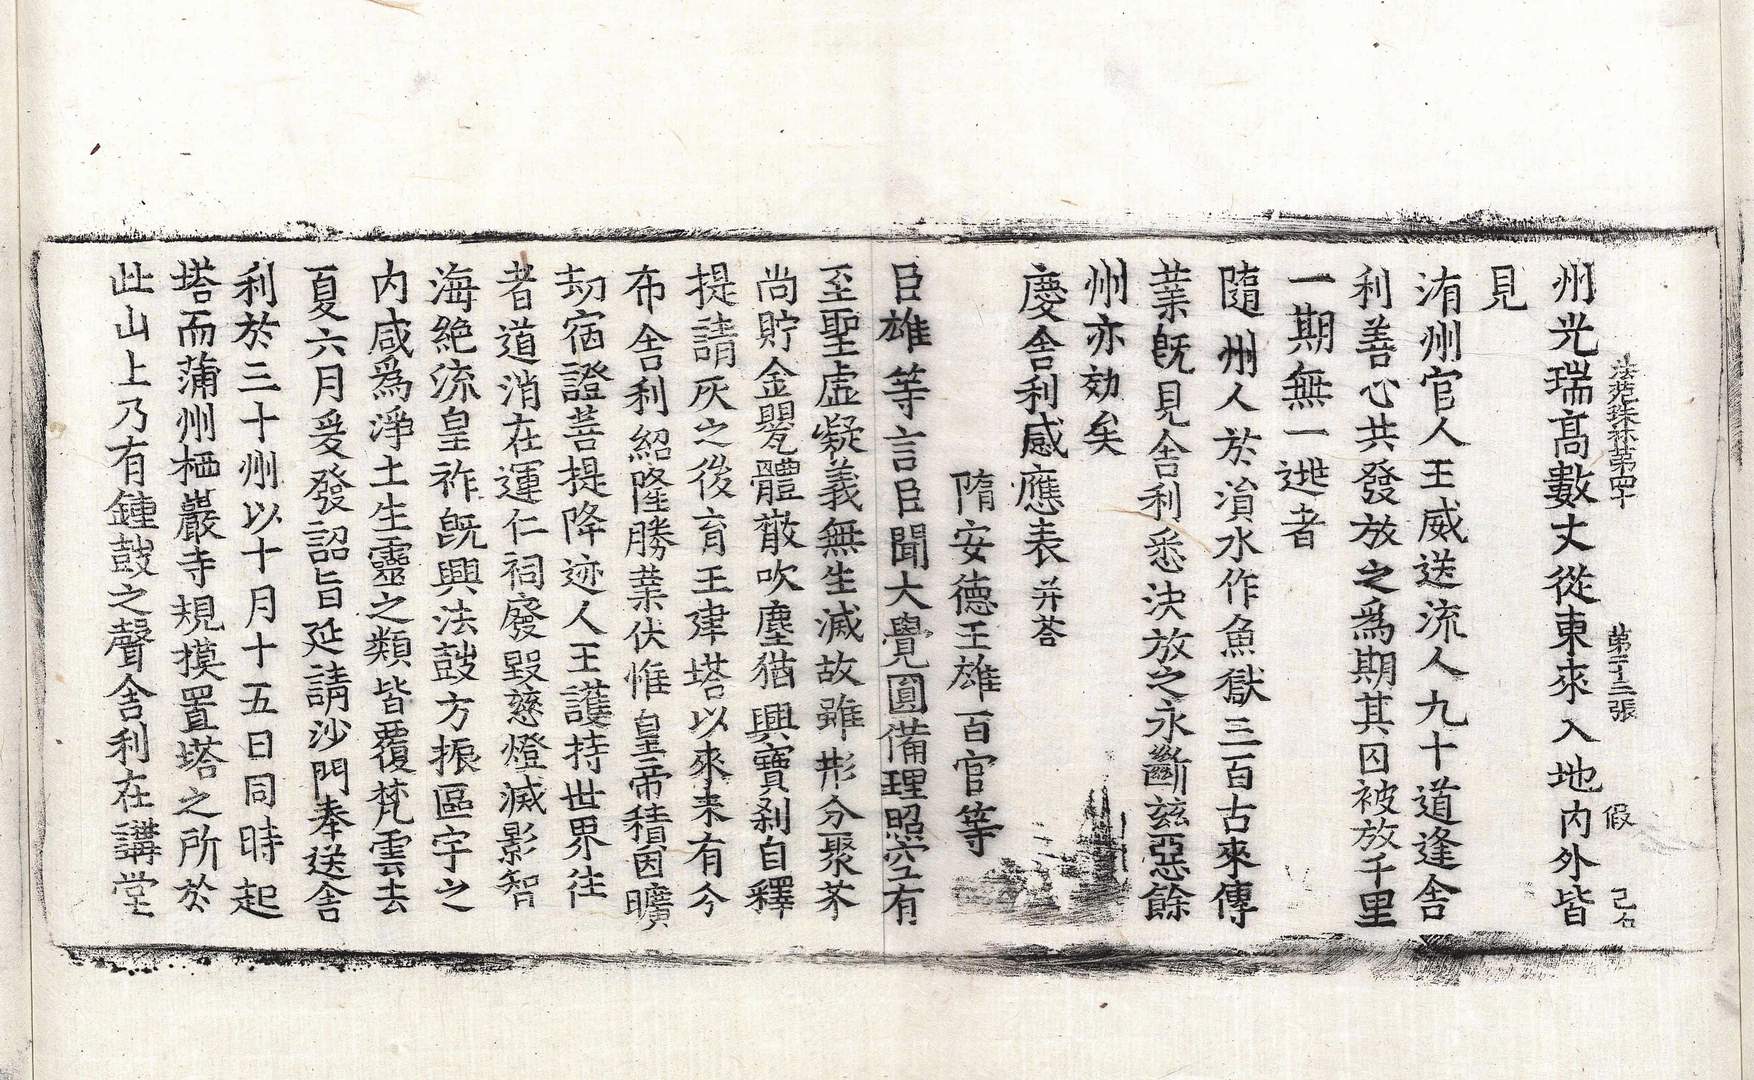 法苑珠林第四十 第二十三張 假 己
州光瑞高數丈從東來入地内外皆
見
洧州官人王威送流人九十道逢舍
利善心共發放之爲期其囚被放千里
一期無一逃者
隨州人於溳水作魚獄三百古來傳
業旣見舍利悉決放之永斷玆惡餘
州亦効矣
慶舍利感應表并荅
隋安德王雄百官等
臣雄等言臣聞大覺圓備理照空有
至聖虛凝義無生滅故雖形分聚芥
尚貯金甖體散吹塵猶興寶刹自釋
提請灰之後育王建塔以來未有今
布舍利紹隆勝業伏惟皇帝積因曠
劫宿證菩提降迹人王護持世界往
者道消在運仁祠廢毀慈燈滅影智
海絶流皇祚旣興法鼓方振區宇之
内咸爲淨土生靈之類皆覆梵雲去
夏六月爰發詔旨延請沙門奉送舍
利於三十州以十月十五日同時起
塔而蒲州栖巖寺規摸置塔之所於
此山上乃有鍾鼓之聲舍利在講堂